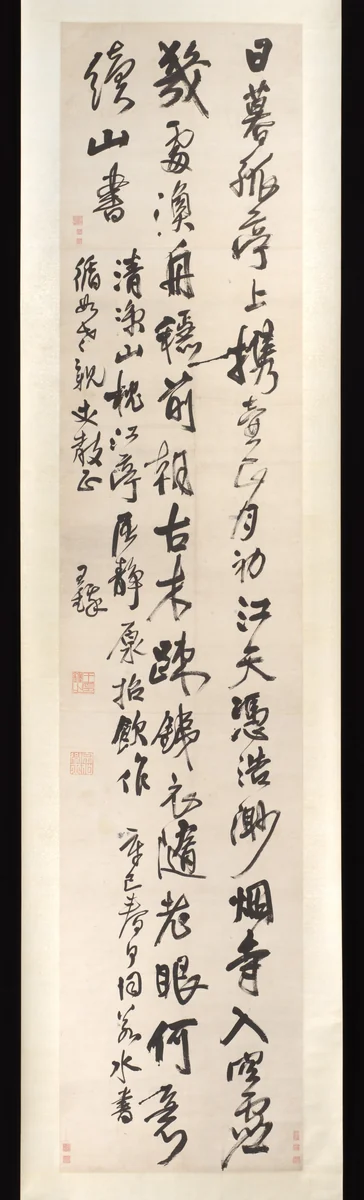 日暮孤亭上携壺正月初江天憑浩渺烟寺入空虛
幾處漁舟穩前朝古木疎錦衣隨老眼何意
續山書
清涼山枕江亭
靜原招飲作
辛巳春日同若水書
循如老親丈教正
王鐸